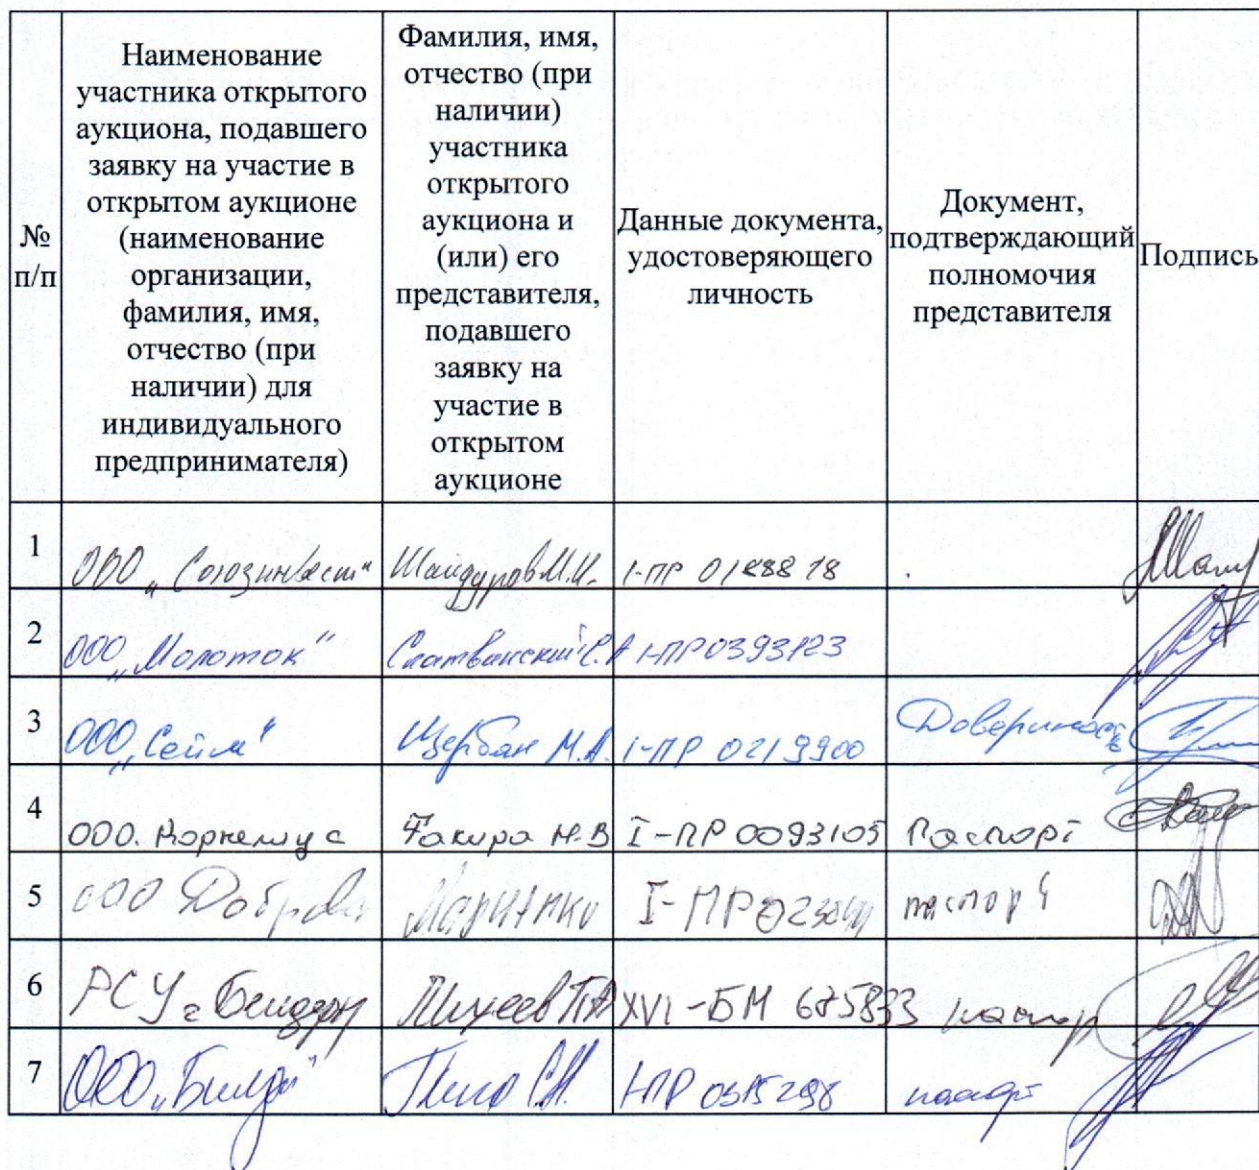 №
п/п
Наименование
участника открытого
аукциона, подавшего
заявку на участие в
открытом аукционе
(наименование
организации,
фамилия, имя,
отчество (при
наличии) для
индивидуального
предпринимателя)
Фамилия, имя,
отчество (при
наличии)
участника
открытого
аукциона и
(или) его
представителя,
подавшего
заявку на
участие в
открытом
аукционе
Данные документа,
удостоверяющего
личность
Документ,
подтверждающий
полномочия
представителя
Подпись
1
ООО „Союзинвест"
Шандуров М.И.
I-ПР
2
ООО „Молоток"
I-ПР 0393123
3
ООО „Сейм"
Щербан М.А.
I-ПР 0219900
4
ООО.
Факира Н.В
I-ПР 0093105
Паспорт
5
ООО
I-ПР
паспорт
6
РСУ г Бендеры
Михеев
XVI-БМ 675833
7
ООО
I-ПР 0515298
паспорт